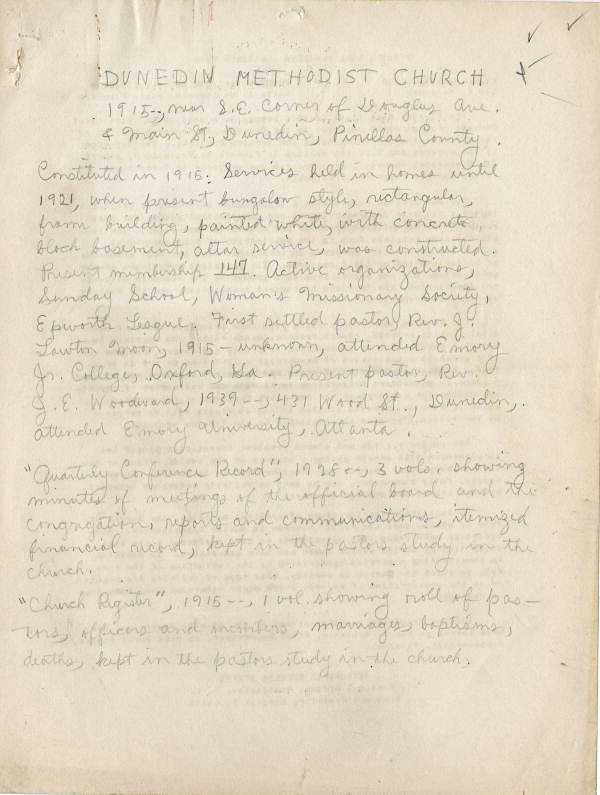 DUNEDIN METHODIST CHURCH
1915--, near S.E. Corner of Douglas Ave.
& Main St., Dunedin, Pinellas County.
Constituted in 1915. Services held in homes until
1921, when present bungalow style, rectangular,
fram building, painted white, with concrete
block basement, altar service, was constructed.
Present membership 147. Active organizations,
Sunday School, Woman's Missionary Society,
Epworth League. First settled pastor, Rev. J.
Lawton Moor, 1915 - unknown, attended Emory
Jr. College, Oxford, Ga. Present pastor, Rev.
J. E. Woodward, 1939--, 431 Wood St., Dunedin,
attended Emory University, Atlanta.
"Quarterly Conference Record", 1928--, 3 vols. showing
minutes of meetings of the official board and the
congregation, reports and communications, itemized
financial record, kept in the pastors study in the
church.
"Church Register", 1915--, 1 vol. showing roll of pas-
tors, officers and members, marriages, baptisms,
deaths, kept in the pastors study in the church.